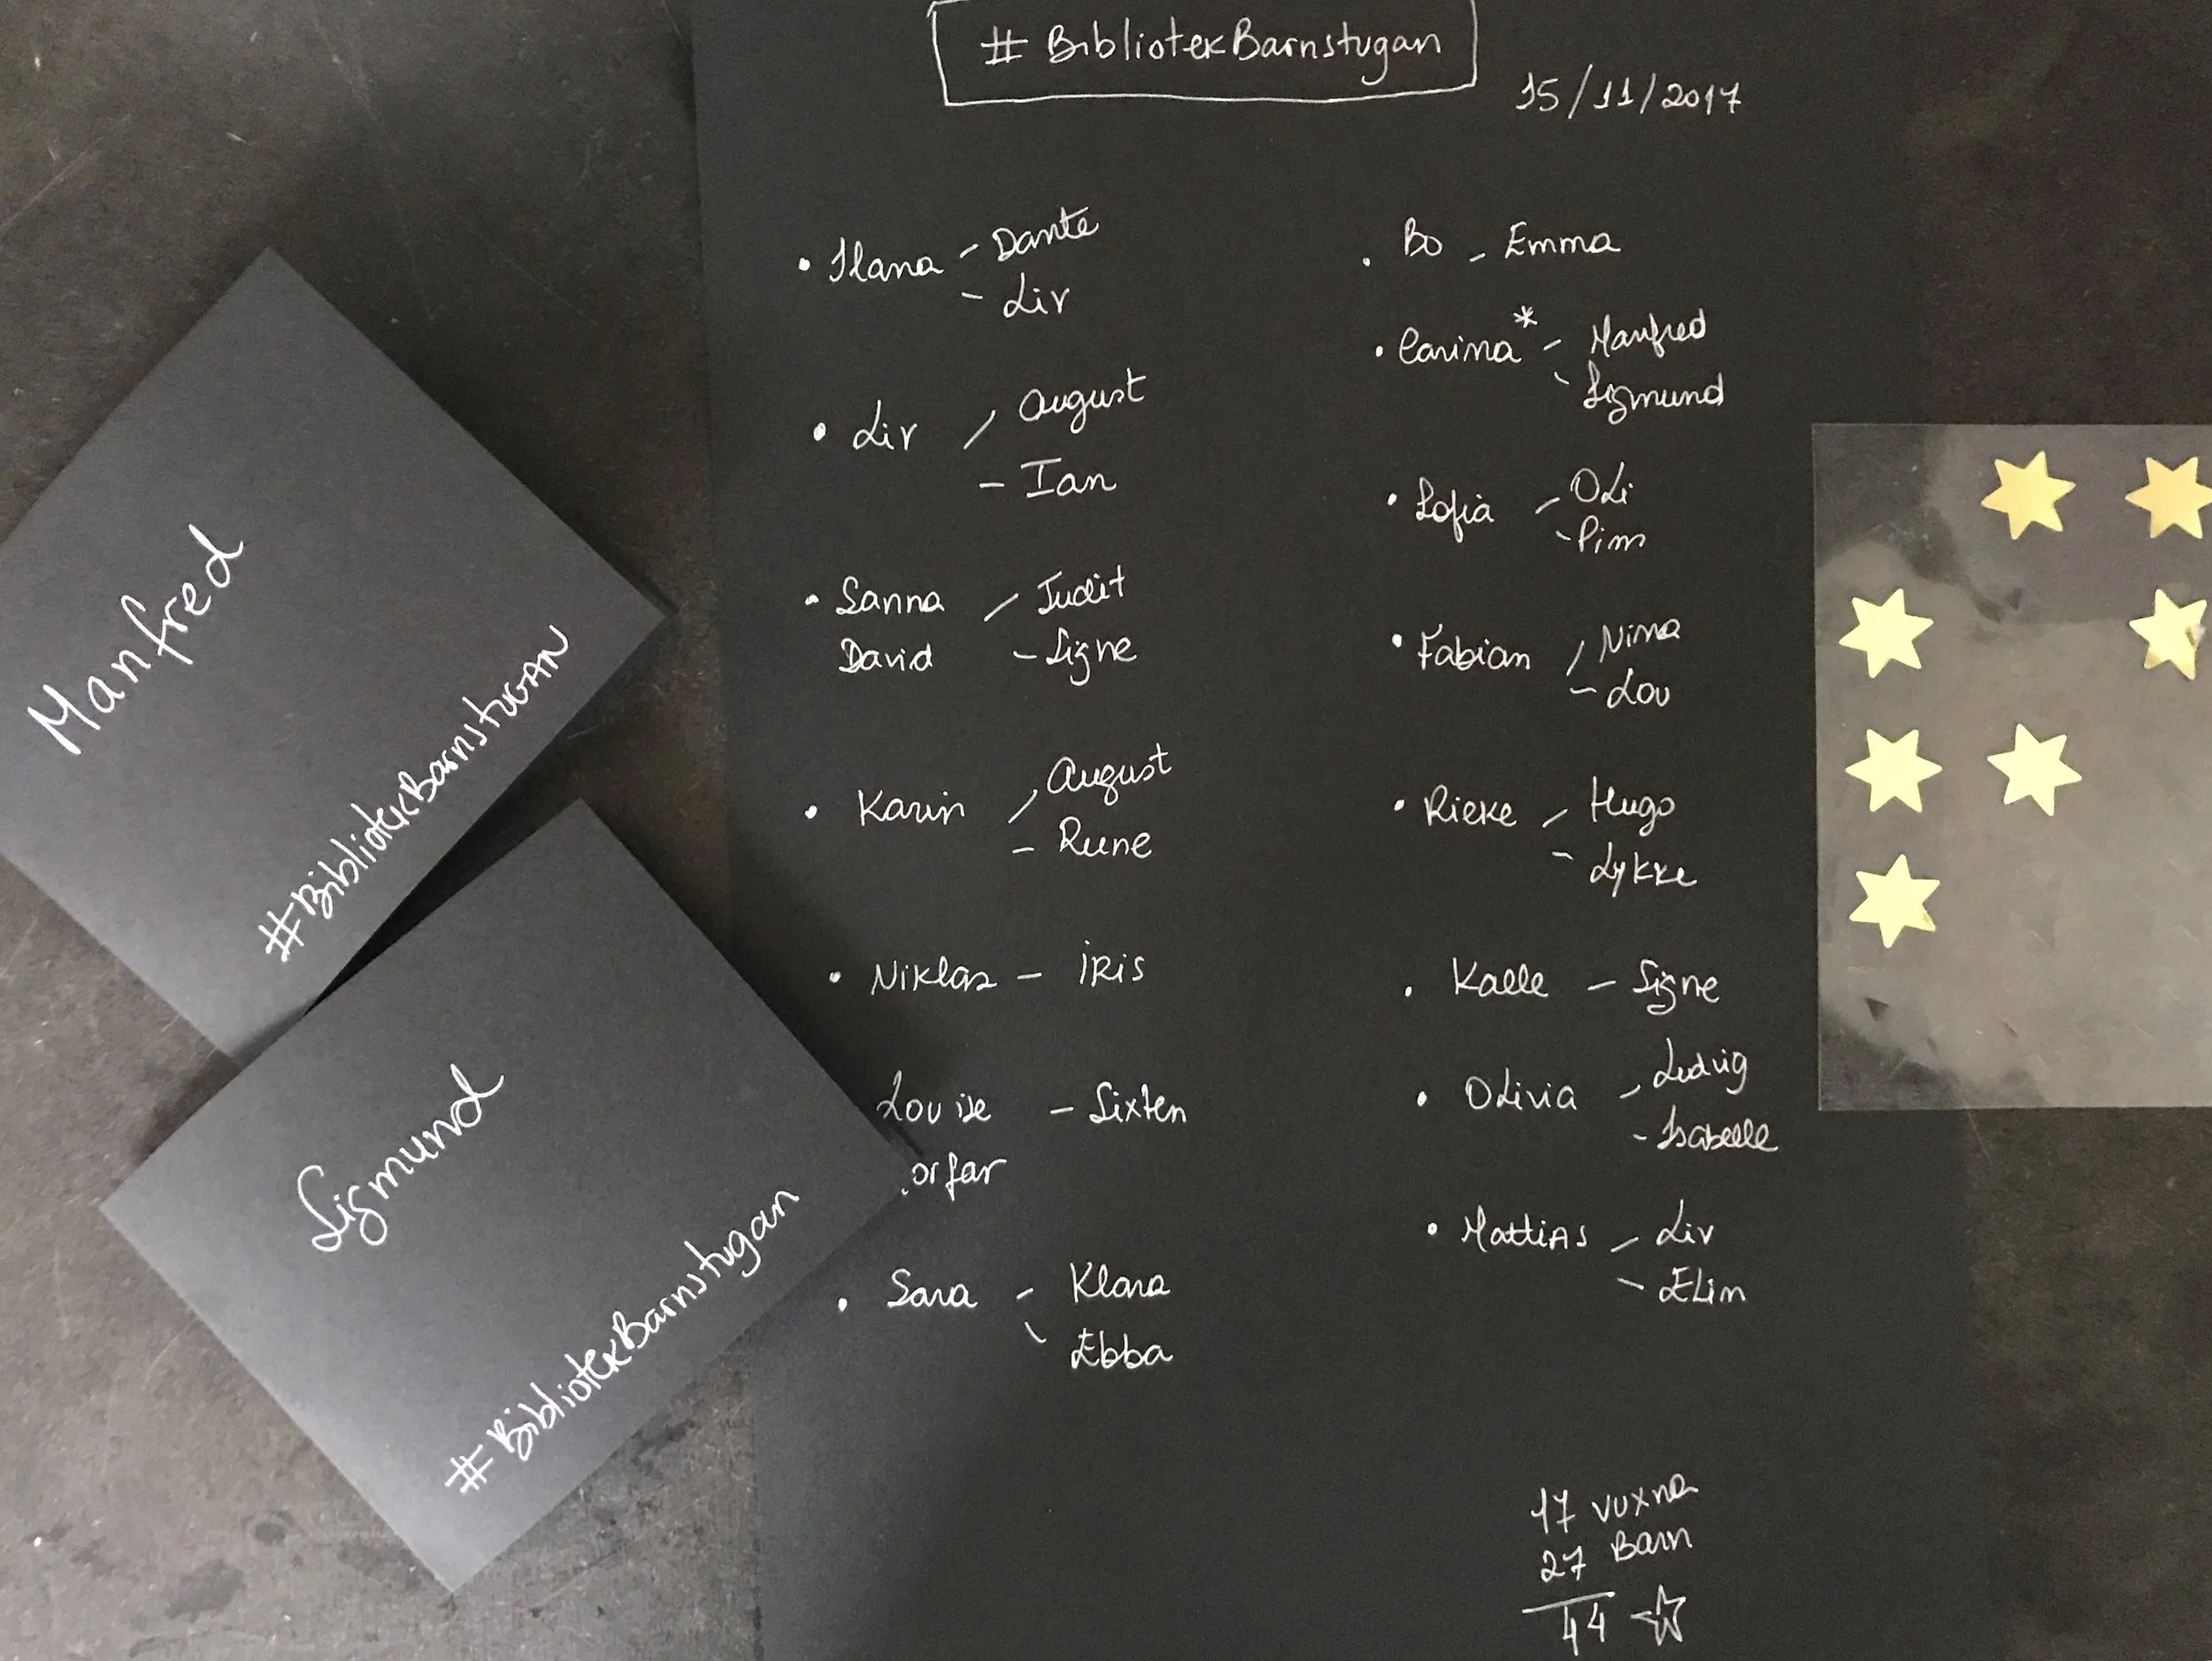 #BibliotekBarnstugan
15/11/2017
• Ilana – Dante
– Liv
• Liv – August
– Ian
• Sanna – Judit
David – Signe
• Karin – August
– Rune
• Niklas – iRis
Louise – Sixten
orfar
• Sara – Klara
– Ebba
• Bo – Emma
• Carina* – Manfred
– Sigmund
• Sofia – OLi
– Pim
• Fabian – Nina
– Lou
• Rieke – Hugo
– Lykke
• Kalle – Signe
• OLivia – Ludvig
– Isabelle
• MattiAs – Liv
– ELin
17 vuxna
27 Barn
44
Manfred
#BibliotekBarnstuGAN
Sigmund
#BibliotekBarnstugan